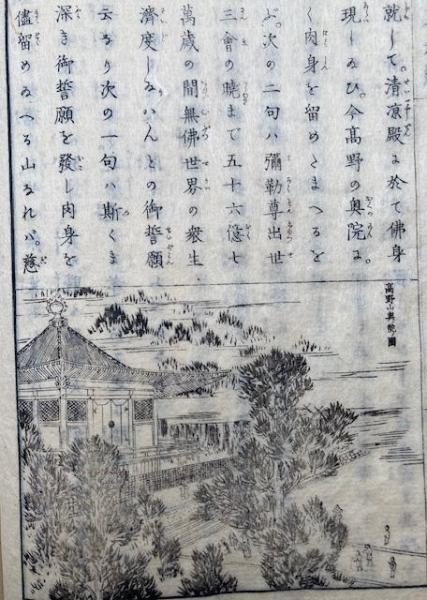 就して。清凉殿に於て佛身
現し給ひ。今高野の奥院に。
く肉身を留めたまへるを
ぶ。次の二句ハ彌勒尊出世
三會の曉まで五十六億七
萬歳の間無佛世界の衆生
濟度し給ハんとの御誓願
云なり次の一句ハ斯くま
深き御誓願を發し肉身を
儘留め給へる山なれバ。慈
高野山奥院之圖